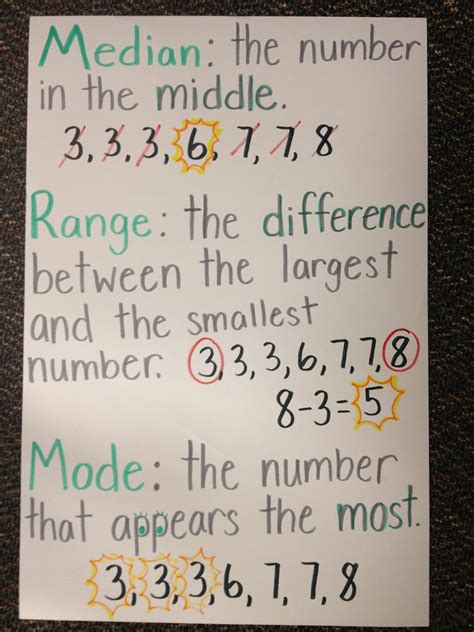 Median: the number
in the middle.
3, 3, 3, 6, 7, 7, 8
Range: the difference
between the largest
and the smallest
number. 3, 3, 3, 6, 7, 7, 8
8-3=5
Mode: the number
that appears the most.
3, 3, 3, 6, 7, 7, 8